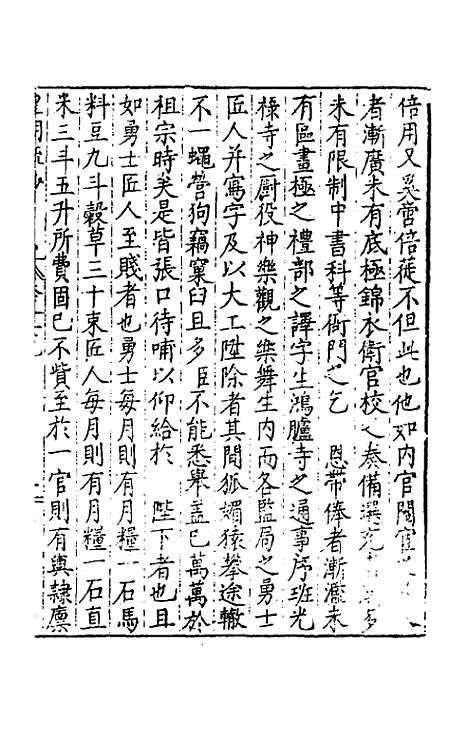 倍用又奚啻倍蓰不但此也他如内官閹官
者漸廣未有底極錦衣衛官校之奏備選充多
未有限制中書科等衙門之乞　恩帶俸者漸濫未
有區畫極之禮部之譯字生鴻臚寺之通事序班光
祿寺之厨役神樂觀之樂舞生内而各監局之勇士
匠人并寫字及以大工陞除者其間狐媚猿攀途轍
不一蠅營狗竊窠臼且多臣不能悉舉盖已萬萬於
祖宗時矣是皆張口待哺以仰給於　陛下者也且
如勇士匠人至賤者也勇士每月則有月糧一石馬
料豆九斗穀草三十束匠人每月則有月糧一石直
米三斗五升所費固已不貲至於一官則有輿隷廪